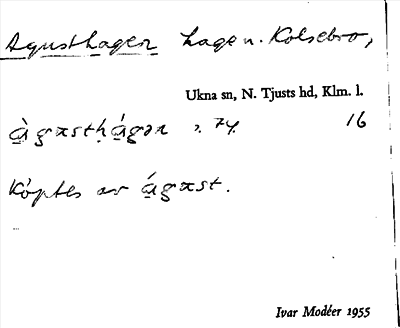 Agusthagen hage n. Kolsebro,
Ukna sn, N. Tjusts hd, Klm. l.
àgꞷstḥágən 74. 16
Köptes av ágꞷst.
Ivar Modéer 1955